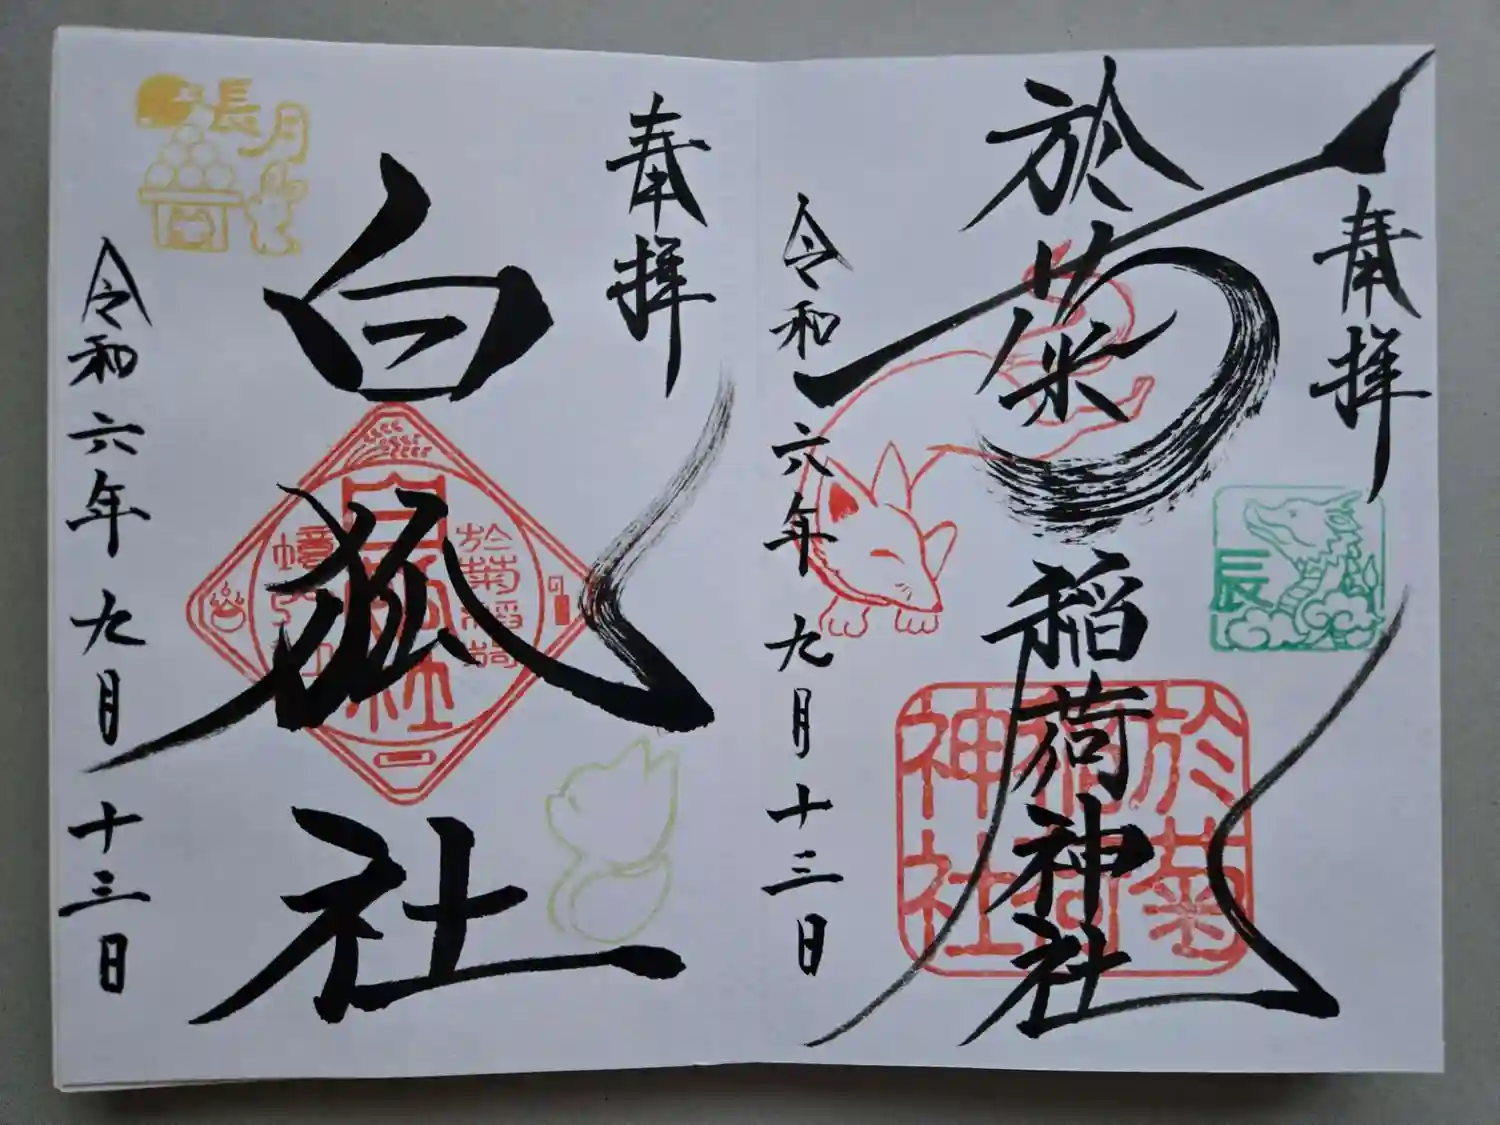 奉拝
於菊稲荷神社
於菊
稲荷
神社
辰
令和六年九月十三日
奉拝
白狐社
於菊稲荷
長月
令和六年九月十三日